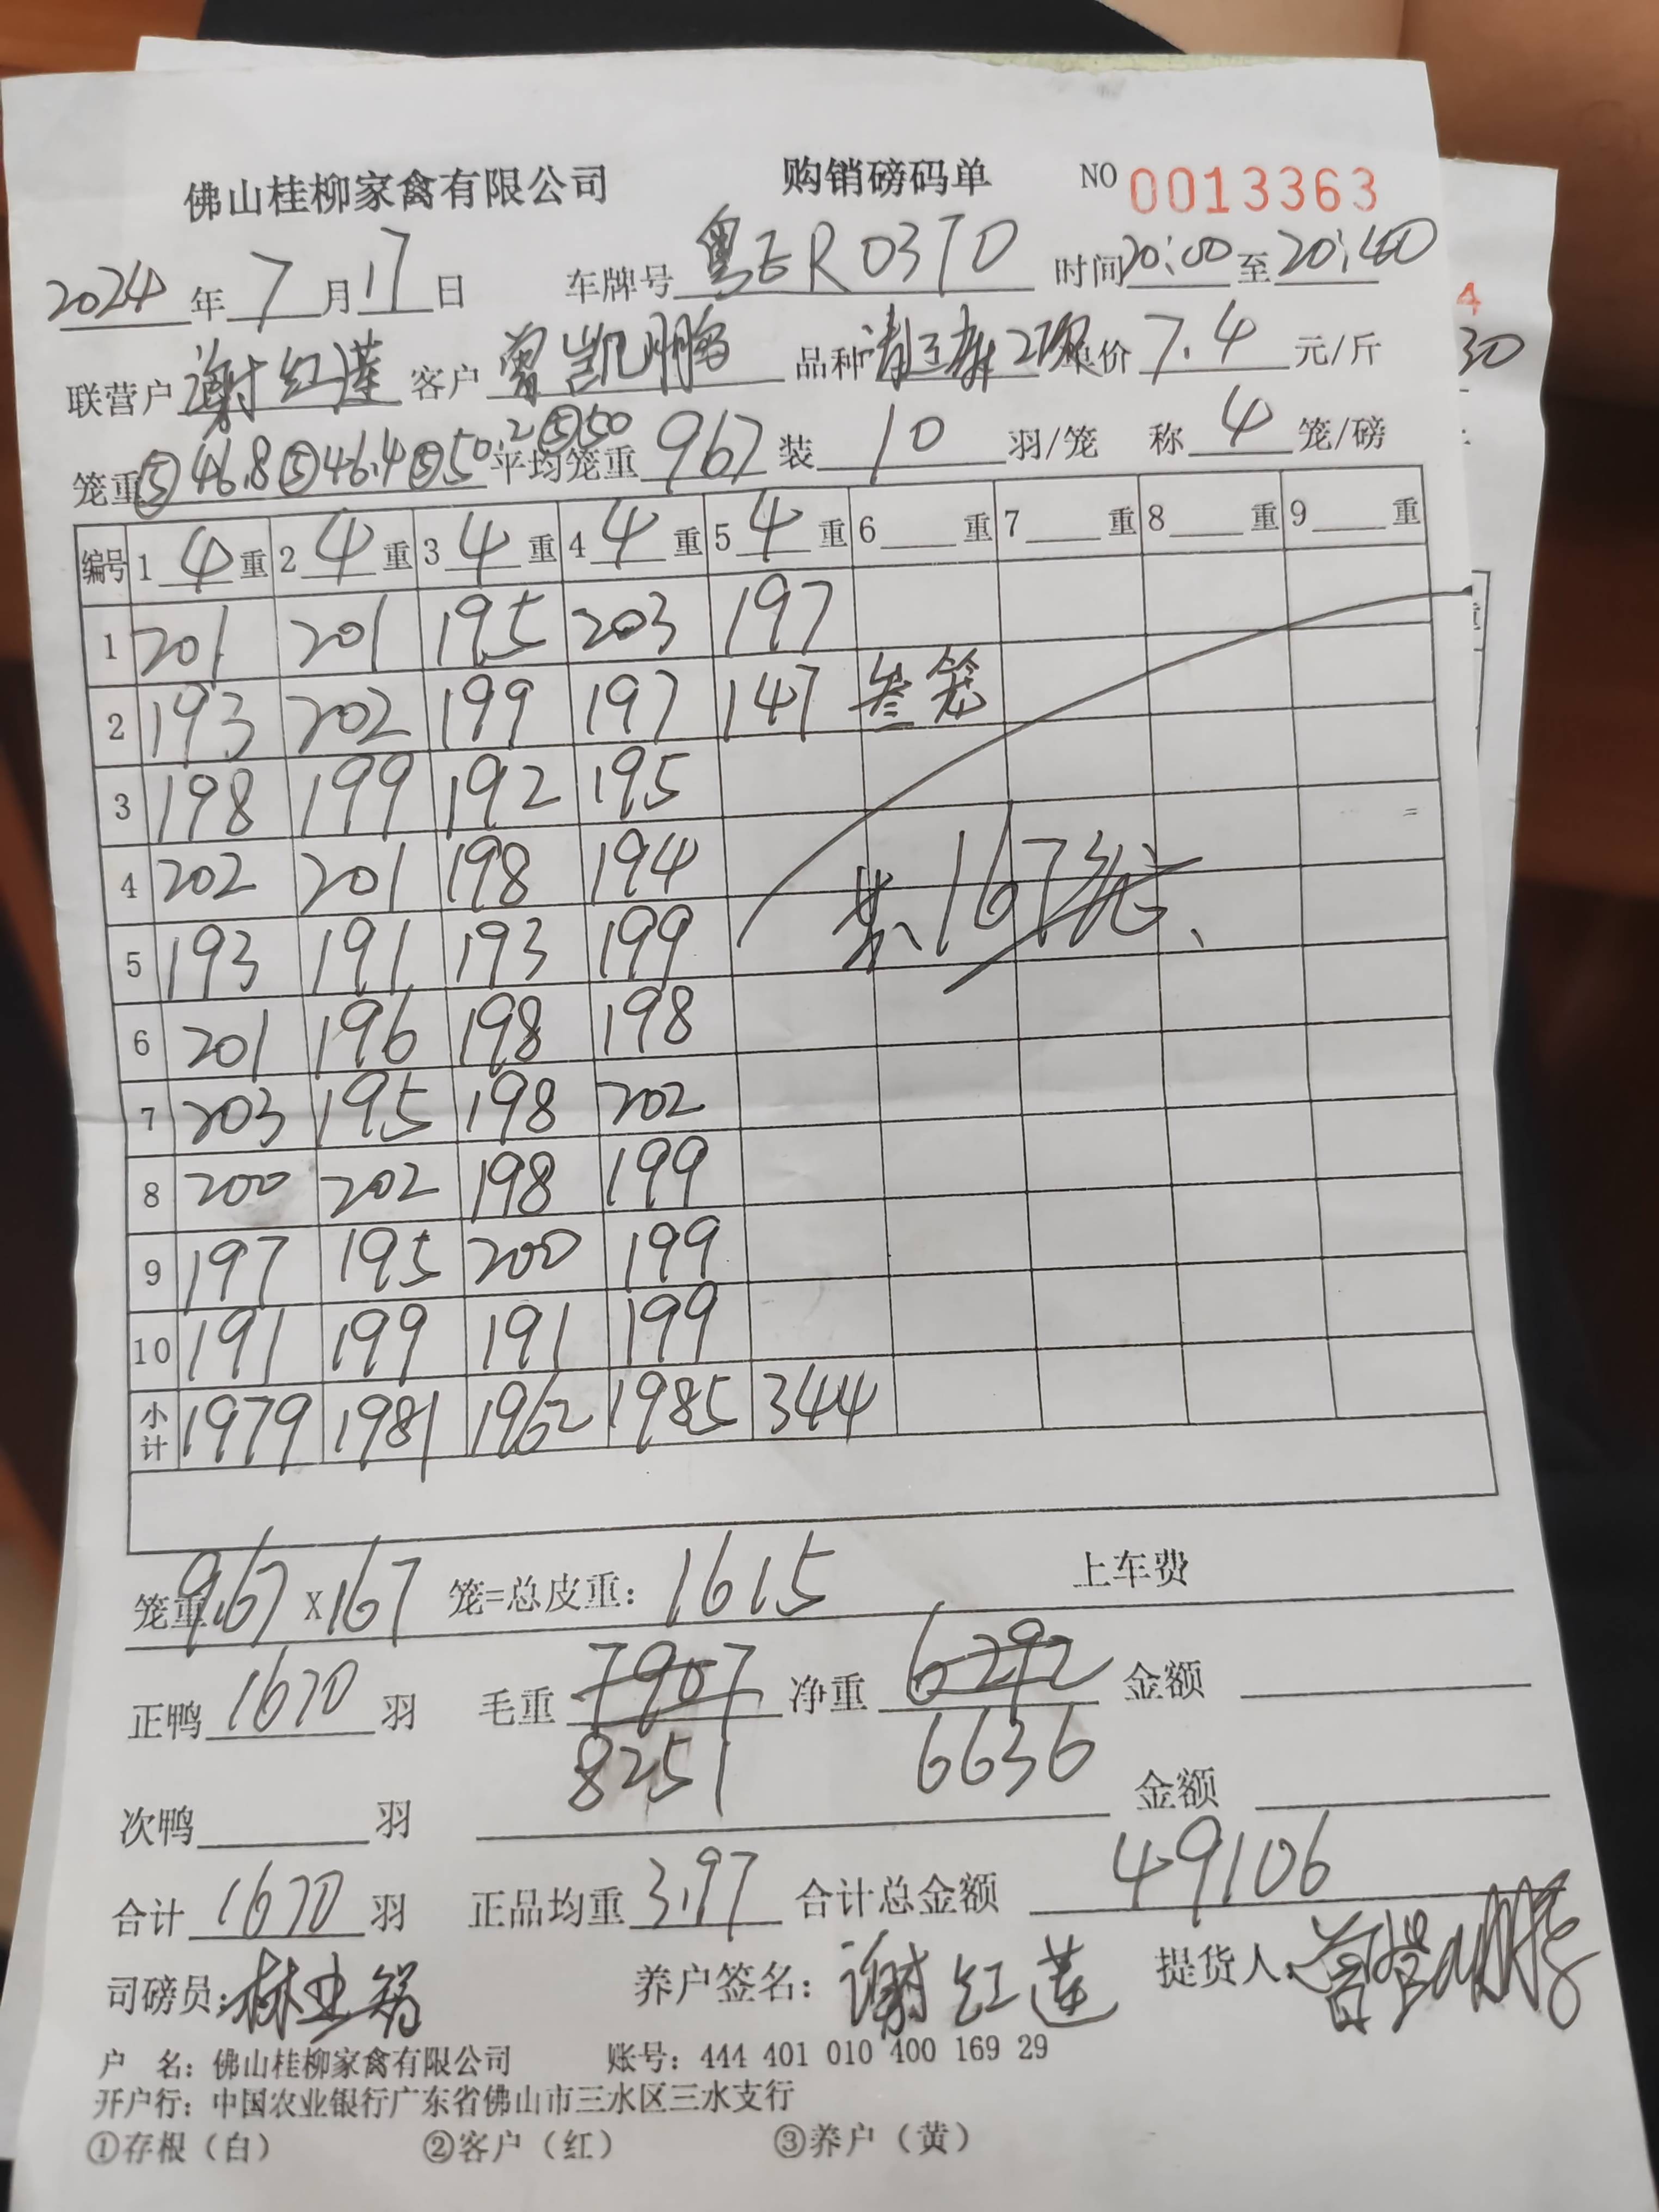 佛山桂柳家禽有限公司 购销磅码单 NO 0013363
2024年7月17日 车牌号 粤ER0370 时间 20:00 至 20:40
联营户 谢红莲 客户 曾凯鹏 品种 单价 7.4 元/斤
笼重 ⑤46.8 ⑤46.4 ⑤50.2 ⑤50 平均笼重 967 装 10 羽/笼 称 4 笼/磅
编号 1 4 重 2 4 重 3 4 重 4 4 重 5 4 重 6 重 7 重 8 重 9 重
1 201 201 195 203 197
2 193 202 199 197 147 叁笼
3 198 199 192 195
4 202 201 198 194
5 193 191 193 199
共167笼
6 201 196 198 198
7 203 195 198 202
8 200 202 198 199
9 197 195 200 199
10 191 199 191 199
小计 1979 1981 1962 1985 344
笼重 9.67 X 167 笼=总皮重: 1615 上车费
正鸭 1670 羽 毛重 7907 净重 6292 金额
8251 6636
次鸭 羽 金额
合计 1670 羽 正品均重 3.97 合计总金额 49106
司磅员: 养户签名: 谢红莲 提货人:
户 名: 佛山桂柳家禽有限公司 账号: 444 401 010 400 169 29
开户行: 中国农业银行广东省佛山市三水区三水支行
①存根(白) ②客户(红) ③养户(黄)
4
30